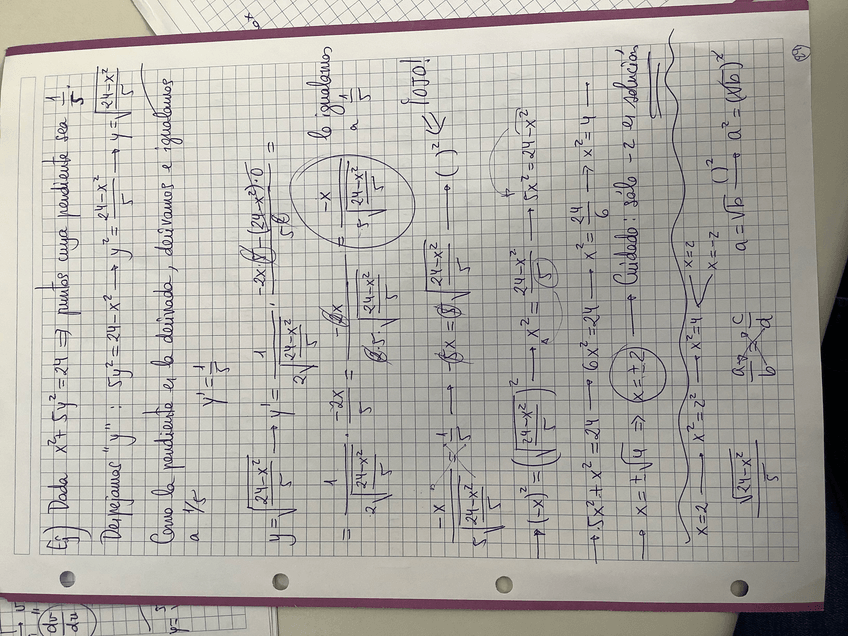 Ej) Dada x²+5y²=24 ⇒ puntos cuya pendiente sea 1/5.
Despejamos "y": 5y²=24-x² → y²=(24-x²)/5 → y=√((24-x²)/5)
Como la pendiente es la derivada, derivamos e igualamos
a 1/5
y'=1/5
y=√((24-x²)/5) → y'=1/(2√((24-x²)/5)) · (-2x·5-(24-x²)·0)/5² =
= 1/(2√((24-x²)/5)) · (-2x)/5 = (-2x)/(2·5·√((24-x²)/5)) = (-x)/(5√((24-x²)/5)) lo igualamos
a 1/5
(-x)/(5√((24-x²)/5)) = 1/5 → -5x=5√((24-x²)/5) → ( )² ⇐ ¡OJO!
→ (-x)²=(√((24-x²)/5))² → x²=(24-x²)/5 → 5x²=24-x²
→ 5x²+x²=24 → 6x²=24 → x²=24/6 → x²=4 →
→ x=±√4 ⇒ x=±2 → Cuidado: sólo -2 es solución
x=2 → x²=2² → x²=4 x=2
x=-2
√(24-x²)/5
a/b = c/d
a=√b ( )² → a²=(√b)²